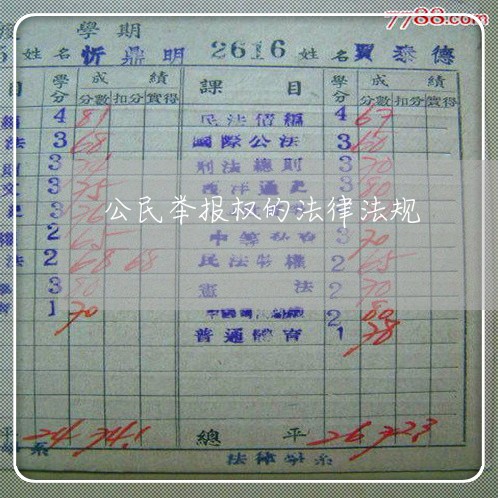 7788.com
學期
姓名 忻鼎明 2616 姓名 賈泰德
目 學分 成績 課目 學分 成績
分數 扣分 實得 分數 扣分 實得
4 81 民法債編 4 67
法 3 68 國際公法 3 60
3 刑法總則 3 70
3 75 西洋通史 3 80
公民举报权的法律法规
2 65 3 70
法 2 68 68 民法物權 2 65
3 80 憲法 2 70
1 70 2 80
普通體育 1 78
平 24 74.1 總平 26 72.3
系 法律學系